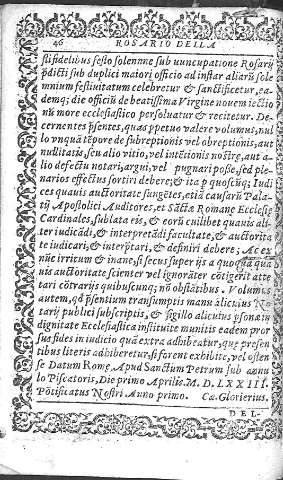 46 ROSARIO DELLA
stifidelibus festo solemne sub nuncupatione Rosarij
p̄dicti sub duplici maiori officio ad instar aliarū sole
mnium festiuitatum celebretur & sanctificetur, ea-
demq; die officiū de beatissima Virgine nouem lectio
nū more ecclesiastico persoluatur & recitetur. De-
cernentes p̄sentes, quas ppetuo valere volumus, nul
lo vnquā tēpore de subreptionis vel obreptionis, aut
nullitatis, seu alio vitio, vel intētionis nostrę, aut a-
lio defectu notari, argui, vel pugnari posse, sed ple-
narios effectus sortiri debere; & ita p quoscūq; Iudi
ces quauis auctoritate fungētes, etiā causarū Pala-
tij Apostolici Auditores, et Sāctæ Romanę Ecclesię
Cardinales, sublata eis, & eorū cuilibet quauis ali-
ter iudicādi, & interpretādi facultate, & auctorita
te iudicari, & interp̄tari, & definiri debere; Ac ex
nūc irritum & inane, si secus super ijs a quoquā qua
uis auctoritate scienter vel ignorāter cōtigerit atte
tari cōtrarijs quibuscunq; nō obstātibus. Volumus
autem, qd p̄sentium transumptis manu alicuius No
tarij publici subscriptis, & sigillo alicuius p̄sonæ in
dignitate Ecclesiastica institutæ munitis eadem pror
sus fides in iudicio quā extra adhibeatur, quæ præsen
tibus literis adhiberetur, si forent exhibitæ, vel osten
sæ Datum Romę Apud Sanctum Petrum sub annu
lo Piscatoris, Die primo Aprilis M. D. LXXIII.
Pōtificatus Nostri Anno primo. Cæ. Glorierius.
DEL-